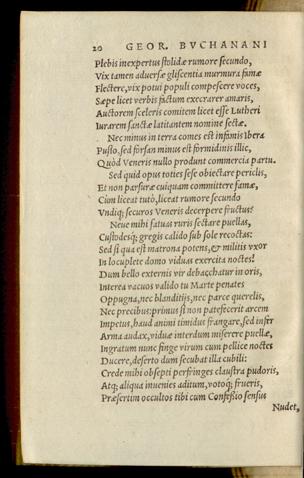 20 GEOR. BVCHANANI
Plebis inexpertus stolidæ rumore secundo,
Vix tamen aduersæ gliscentia murmura famæ
Flectere, vix potui populi compescere voces,
Sæpe licet verbis factum execrarer amaris,
Auctorem sceleris comitem licet esse Lutheri
Iurarem sanctæ latitantem nomine sectæ.
Nec minus in terra comes est infamis Ibera
Pusio, sed forsan minus est formidinis illic,
Quòd Veneris nullo produnt commercia partu.
Sed quid opus toties sese obiectare periclis,
Et non parsuræ cuiquam committere famæ,
Cùm liceat tutò, liceat rumore secundo
Vndiq; securos Veneris decerpere fructus?
Neue mihi fatuas ruris sectare puellas,
Custodesq; gregis calido sub sole recoctas:
Sed si qua est matrona potens, & militis vxor
In locuplete domo viduas exercita noctes!
Dum bello externis vir debacchatur in oris,
Interea vacuos valido tu Marte penates
Oppugna, nec blanditijs, nec parce querelis,
Nec precibus: primus si non patefecerit arcem
Impetus, haud animi timidus frangare, sed infer
Arma audax, viduæ interdum miserere puellæ,
Ingratum nunc finge virum cum pellice noctes
Ducere, deserto dum secubat illa cubili:
Crede mihi obsepti perfringes claustra pudoris,
Atq; aliqua inuenies aditum, votoq; frueris,
Præsertim occultos tibi cum Confeßio sensus
Nudet,